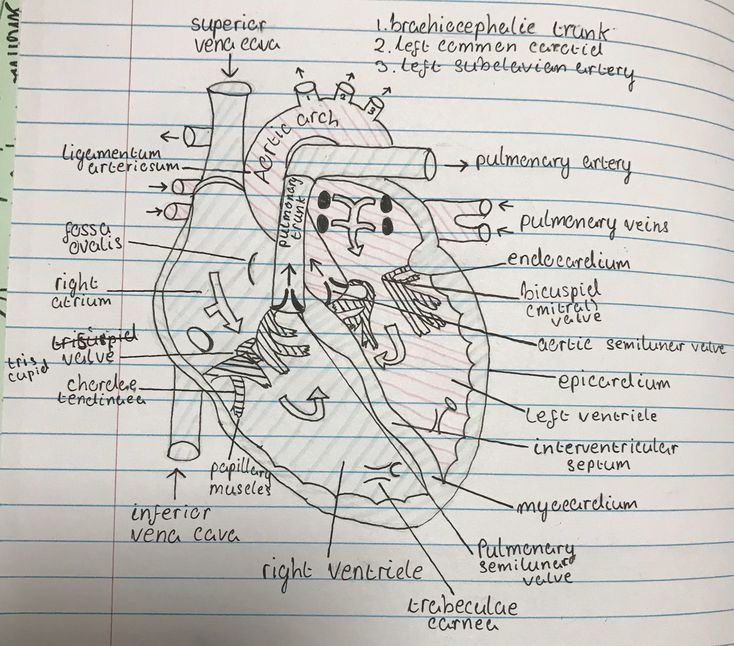 superior
vena cava
1. brachiocephalic trunk
2. left common carotid
3. left subclavian artery
1
2
3
Aortic arch
ligamentum
arteriosum
pulmonary artery
pulmonary
trunk
pulmonary veins
fossa
ovalis
endocardium
right
atrium
bicuspid
(mitral)
valve
triscuspid
valve
tris
cupid
aortic semilunar valve
chordae
tendinaea
epicardium
left ventricle
interventricular
septum
papillary
muscles
myocardium
inferior
vena cava
right ventricle
Pulmonary
semilunar
valve
trabeculae
carnea